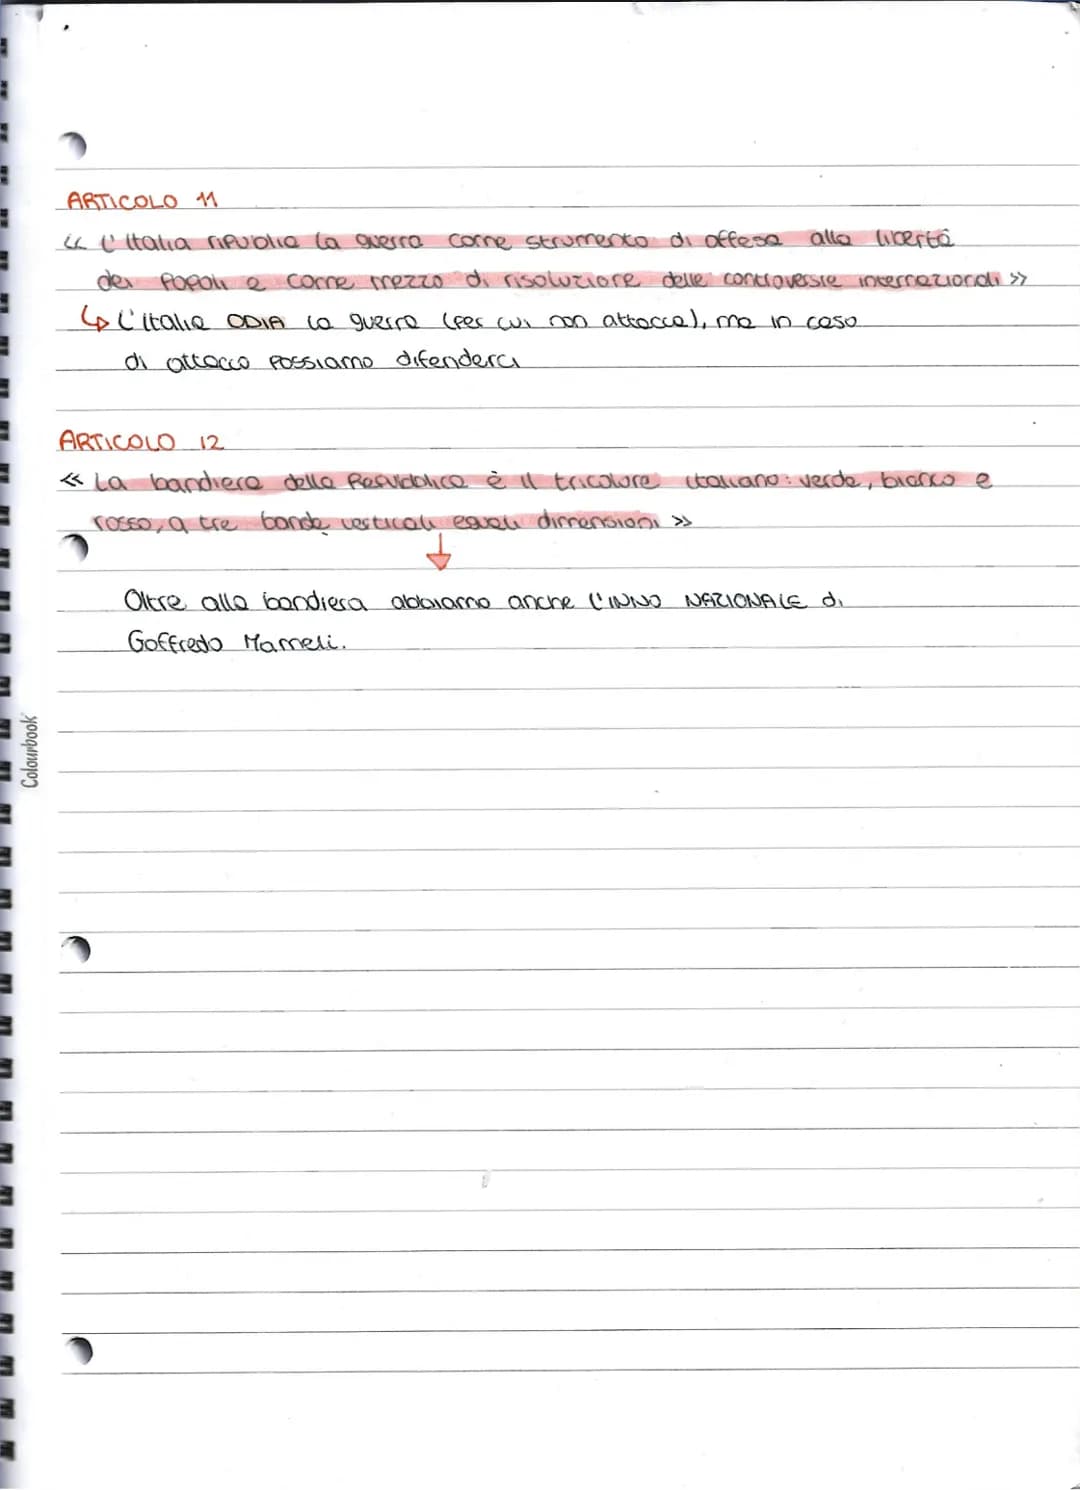 ARTICOLO 11
<< L'Italia ripudia la guerra come strumento di offesa alla libertà
dei popoli e come mezzo di risoluzione delle controversie internazionali >>
↳ L'Italia ODIA la guerra (per cui non attacca), ma in caso
di attacco possiamo difenderci
ARTICOLO 12
<< La bandiera della Repubblica è il tricolore italiano: verde, bianco e
rosso, a tre bande verticali eguali dimensioni >>
↓
Oltre alla bandiera abbiamo anche l'INNO NAZIONALE di
Goffredo Mameli.
Colourbook